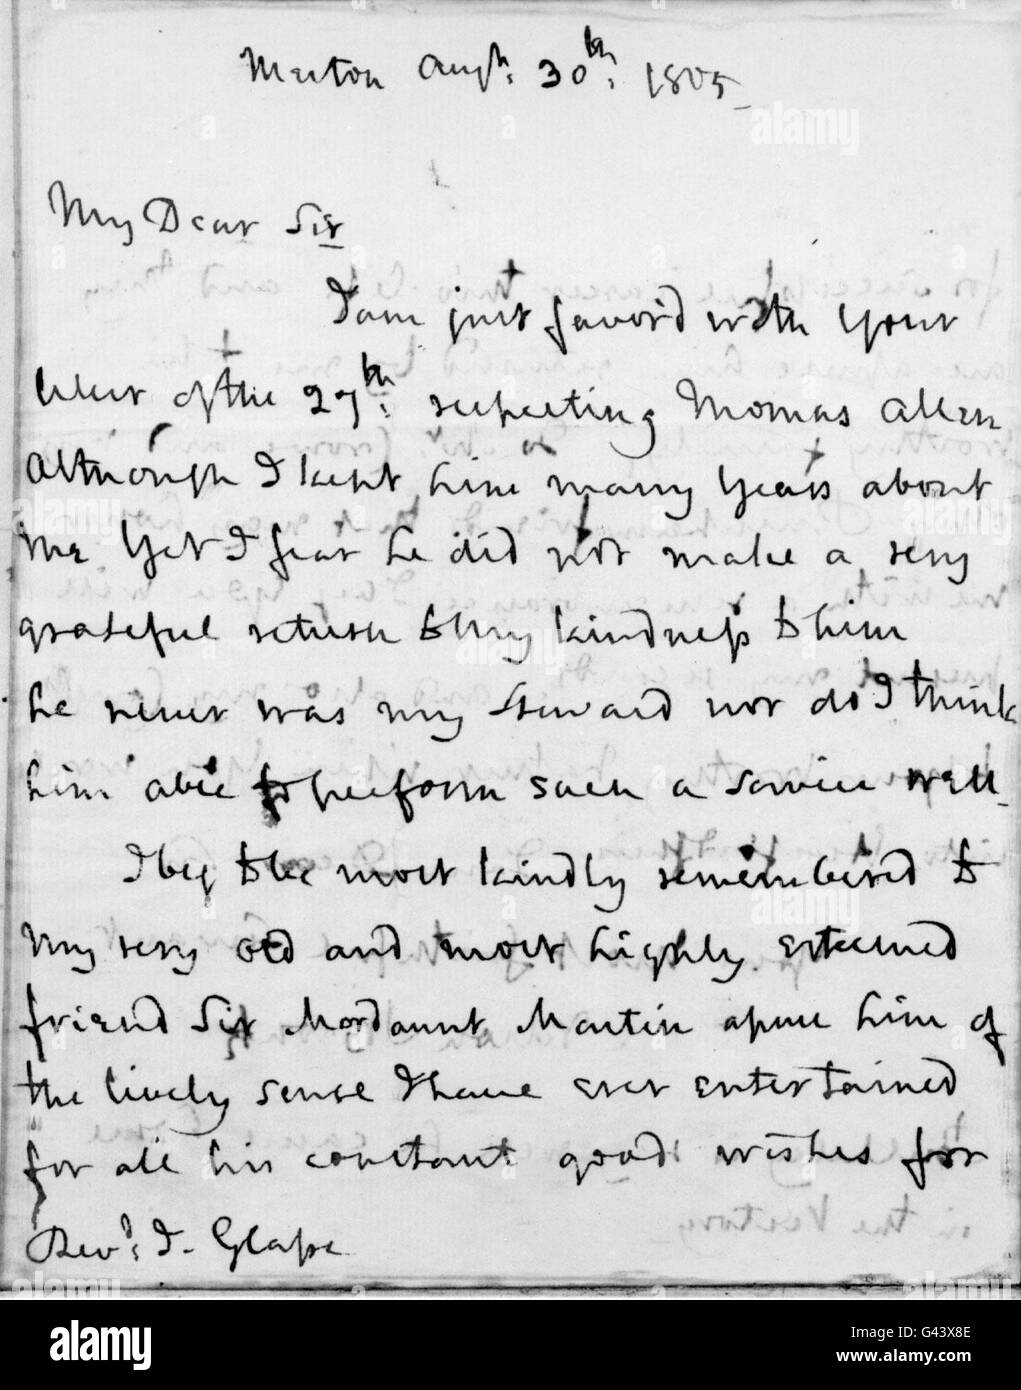 Merton Augt: 30th: 1805
My Dear Sir
I am just favor'd with your
letter of the 27th: respecting Thomas Allen
Although I kept him many years about
me yet I fear he did not make a very
grateful return to my kindness to him
he never was my Steward nor do I think
him able to perform such a service well
I beg to be most kindly remembered to
my very old and most highly esteemed
friend Sir Mordaunt Martin assure him of
the lively sense I have ever entertained
for all his constant good wishes for
Revd: I. Glasse
alamy
Image ID: G43X8E
www.alamy.com